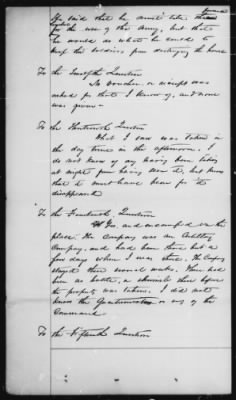 He said that he must take the forage
for the use of the Army, but that
he would do what he could to
keep the soldiers from destroying the house
To the Twelfth Question
No voucher or receipt was
asked for that I know of, and none
was given -
To the Thirteenth Question
What I saw was taken in
the day time in the afternoon. I
do not know of any having been taken
at night from having seen it, but know
that it must have been for it
disappeared
To the Fourteenth Question
Yes, and encamped on the
place. The Company was an Artillery
Company, and had been there but a
few days when I was there. The Company
stayed there several weeks. There had
been no battle, or skirmish there before
the property was taken. I did not
know the Quartermaster or any of the
Command
To the Fifteenth Question